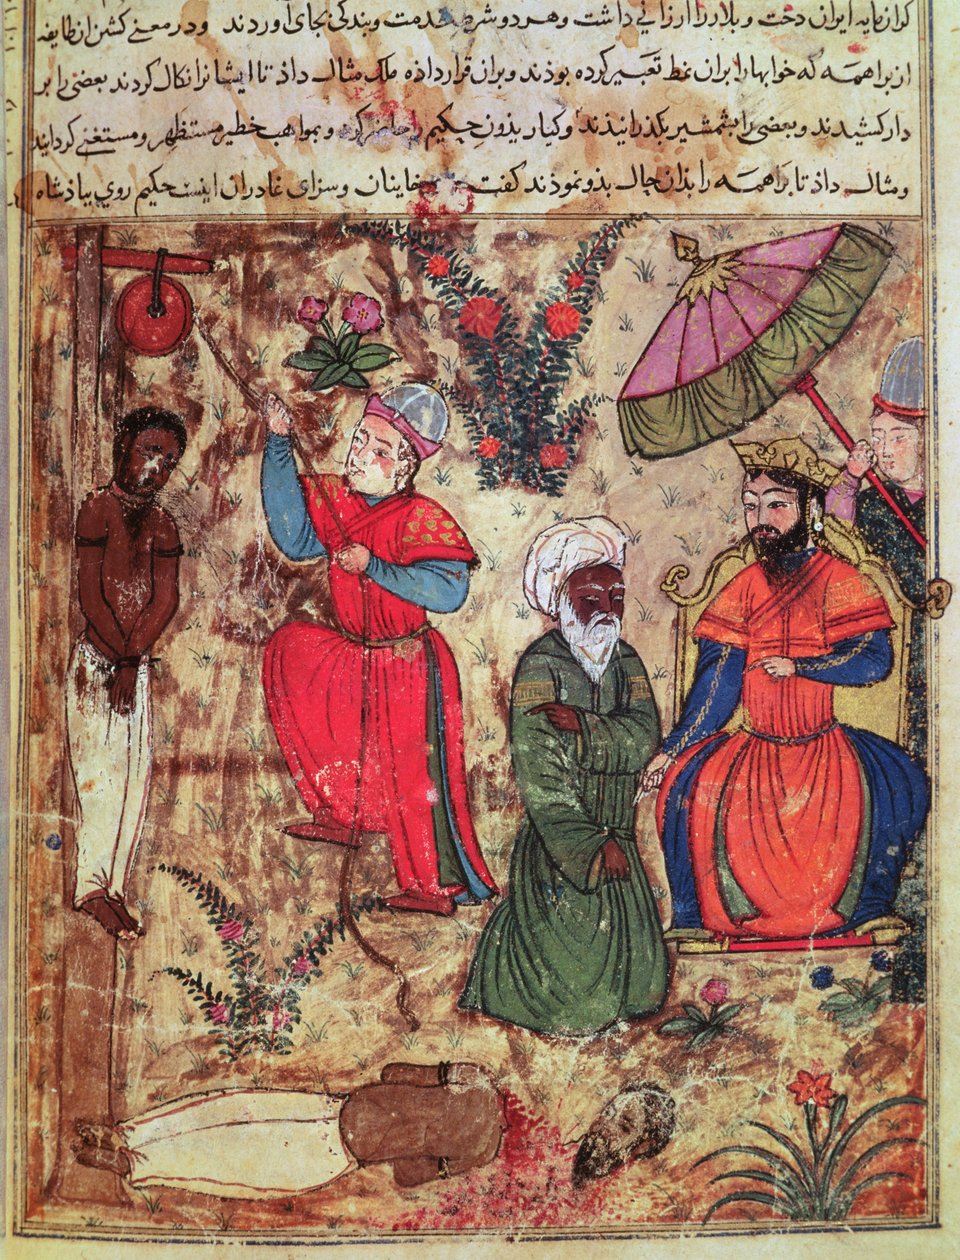 کران مایه ایران دخت و بلار را ارزانی داشت و هر دو شرط خدمت و بندکی بجای آوردند و در معنی کشتن ان طایفه
از براهمه که خوابها را بران نمط تعبیر کرده بوذند و بران قرار داذه ملک مثال داذ تا ایشانرا نکال کردند بعضی را بر
دار کشیدند و بعضی را بشمشیر بکذرانیذند و کیاریذون حکیم را حاضر کرد و بمواهب خطیر مستظهر و مستغنی کردانید
و مثال داذ تا براهمه را بذان حال بذو نموذند کفت خاینان و سزای غادران اینست حکیم روی بپاذشاه